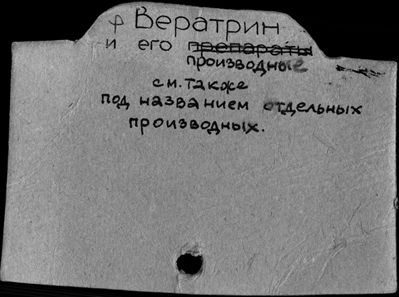 ф Вератрин
и его препараты
производные
см. также
под названием отдельных
производных.